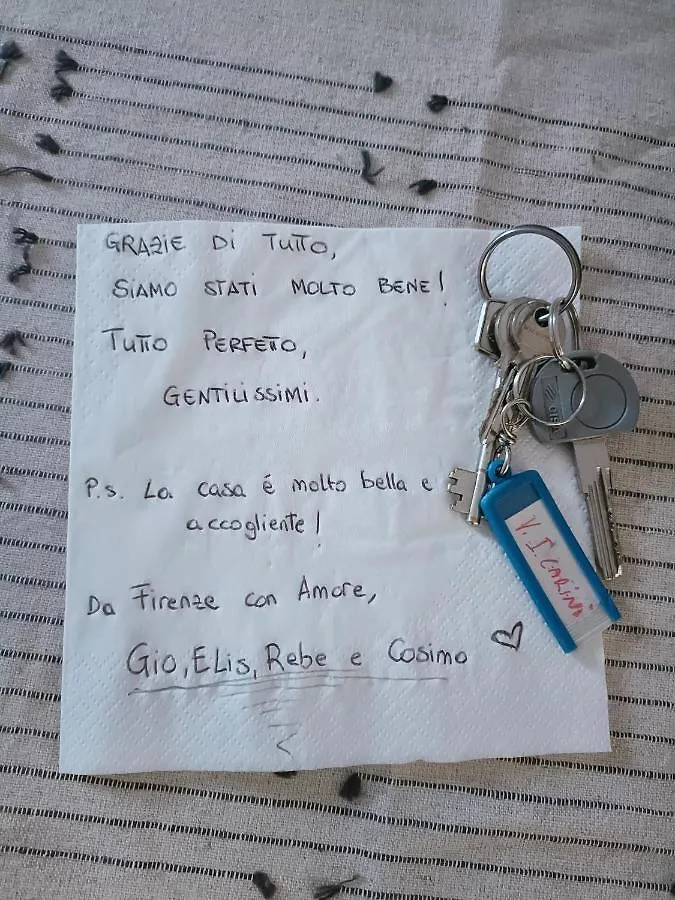 GRAZIE DI TUTTO,
SIAMO STATI MOLTO BENE!
TUTTO PERFETTO,
GENTILISSIMI.
P.S. La casa é molto bella e
accogliente!
Da Firenze con Amore,
Gio, ELis, Rebe e Cosimo
V. I. CARINI